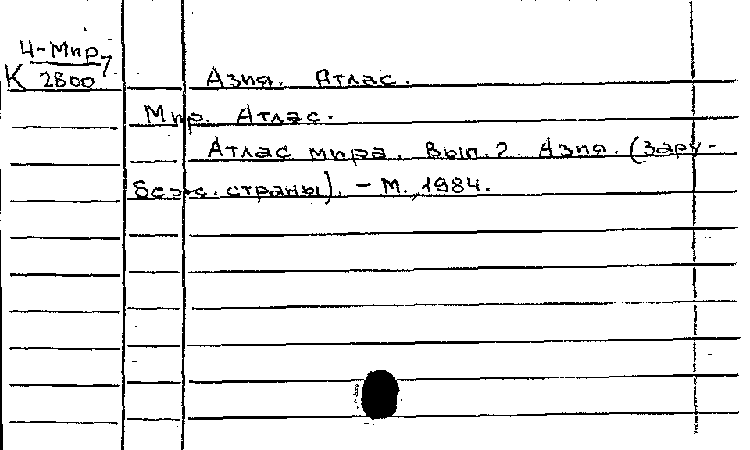 4-Мир7
К 2800
Азия. Атлас.
Мир. Атлас.
Атлас мира. Вып. 2 Азия. (Зару-
беж. страны). - М., 1984.